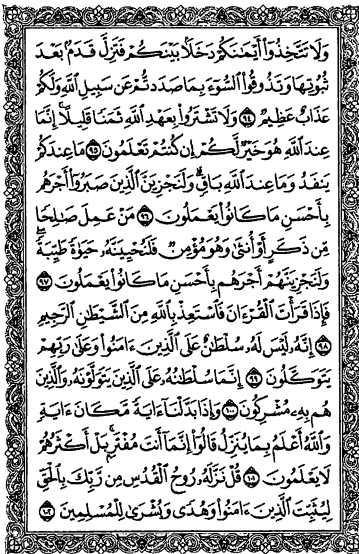 وَلَا تَتَّخِذُوٓا۟ أَيْمَٰنَكُمْ دَخَلًۢا بَيْنَكُمْ فَتَزِلَّ قَدَمٌۢ بَعْدَ
ثُبُوتِهَا وَتَذُوقُوا۟ ٱلسُّوٓءَ بِمَا صَدَدتُّمْ عَن سَبِيلِ ٱللَّهِ وَلَكُمْ
عَذَابٌ عَظِيمٌ ۝٩٤ وَلَا تَشْتَرُوا۟ بِعَهْدِ ٱللَّهِ ثَمَنًا قَلِيلًا ۚ إِنَّمَا
عِندَ ٱللَّهِ هُوَ خَيْرٌ لَّكُمْ إِن كُنتُمْ تَعْلَمُونَ ۝٩٥ مَا عِندَكُمْ
يَنفَدُ وَمَا عِندَ ٱللَّهِ بَاقٍ ۗ وَلَنَجْزِيَنَّ ٱلَّذِينَ صَبَرُوٓا۟ أَجْرَهُم
بِأَحْسَنِ مَا كَانُوا۟ يَعْمَلُونَ ۝٩٦ مَنْ عَمِلَ صَٰلِحًا
مِّن ذَكَرٍ أَوْ أُنثَىٰ وَهُوَ مُؤْمِنٌ فَلَنُحْيِيَنَّهُۥ حَيَوٰةً طَيِّبَةً ۖ
وَلَنَجْزِيَنَّهُمْ أَجْرَهُم بِأَحْسَنِ مَا كَانُوا۟ يَعْمَلُونَ ۝٩٧
فَإِذَا قَرَأْتَ ٱلْقُرْءَانَ فَٱسْتَعِذْ بِٱللَّهِ مِنَ ٱلشَّيْطَٰنِ ٱلرَّجِيمِ
۝٩٨ إِنَّهُۥ لَيْسَ لَهُۥ سُلْطَٰنٌ عَلَى ٱلَّذِينَ ءَامَنُوا۟ وَعَلَىٰ رَبِّهِمْ
يَتَوَكَّلُونَ ۝٩٩ إِنَّمَا سُلْطَٰنُهُۥ عَلَى ٱلَّذِينَ يَتَوَلَّوْنَهُۥ وَٱلَّذِينَ
هُم بِهِۦ مُشْرِكُونَ ۝١٠٠ وَإِذَا بَدَّلْنَآ ءَايَةً مَّكَانَ ءَايَةٍ ۙ
وَٱللَّهُ أَعْلَمُ بِمَا يُنَزِّلُ قَالُوٓا۟ إِنَّمَآ أَنتَ مُفْتَرٍۭ ۚ بَلْ أَكْثَرُهُمْ
لَا يَعْلَمُونَ ۝١٠١ قُلْ نَزَّلَهُۥ رُوحُ ٱلْقُدُسِ مِن رَّبِّكَ بِٱلْحَقِّ
لِيُثَبِّتَ ٱلَّذِينَ ءَامَنُوا۟ وَهُدًى وَبُشْرَىٰ لِلْمُسْلِمِينَ ۝١٠٢